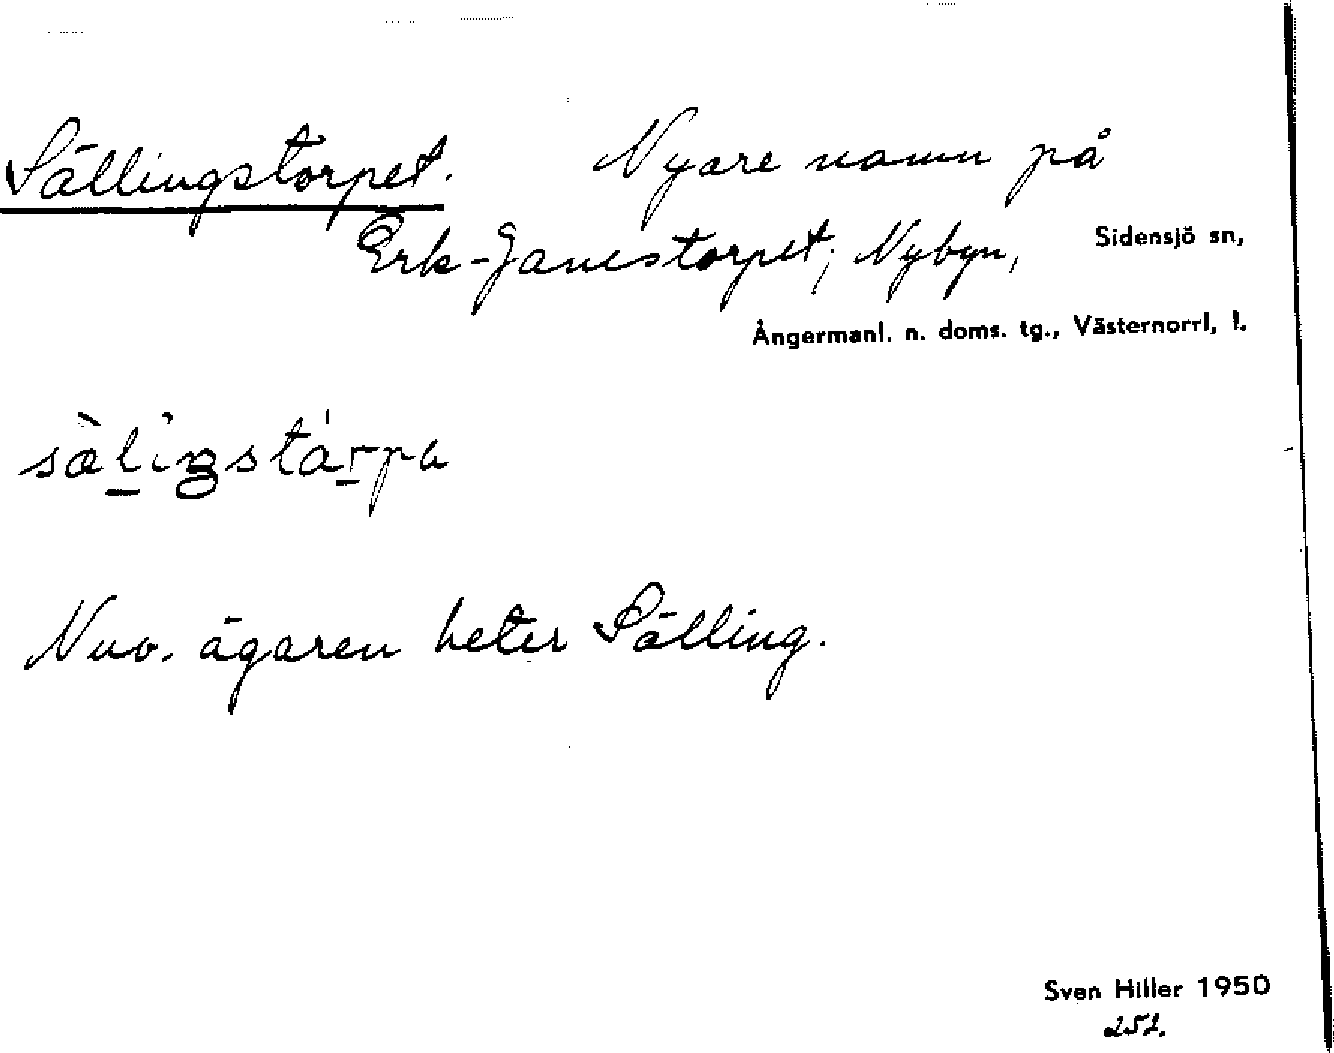 Sällingstorpet. Nyare namn på
Erk-Janestorpet, Nybyn, Sidensjö sn,
Ångermanl. n. doms. tg., Västernorrl, l.
sàliŋstárpa
Nuv. ägaren heter Sälling.
Sven Hiller 1950
252.